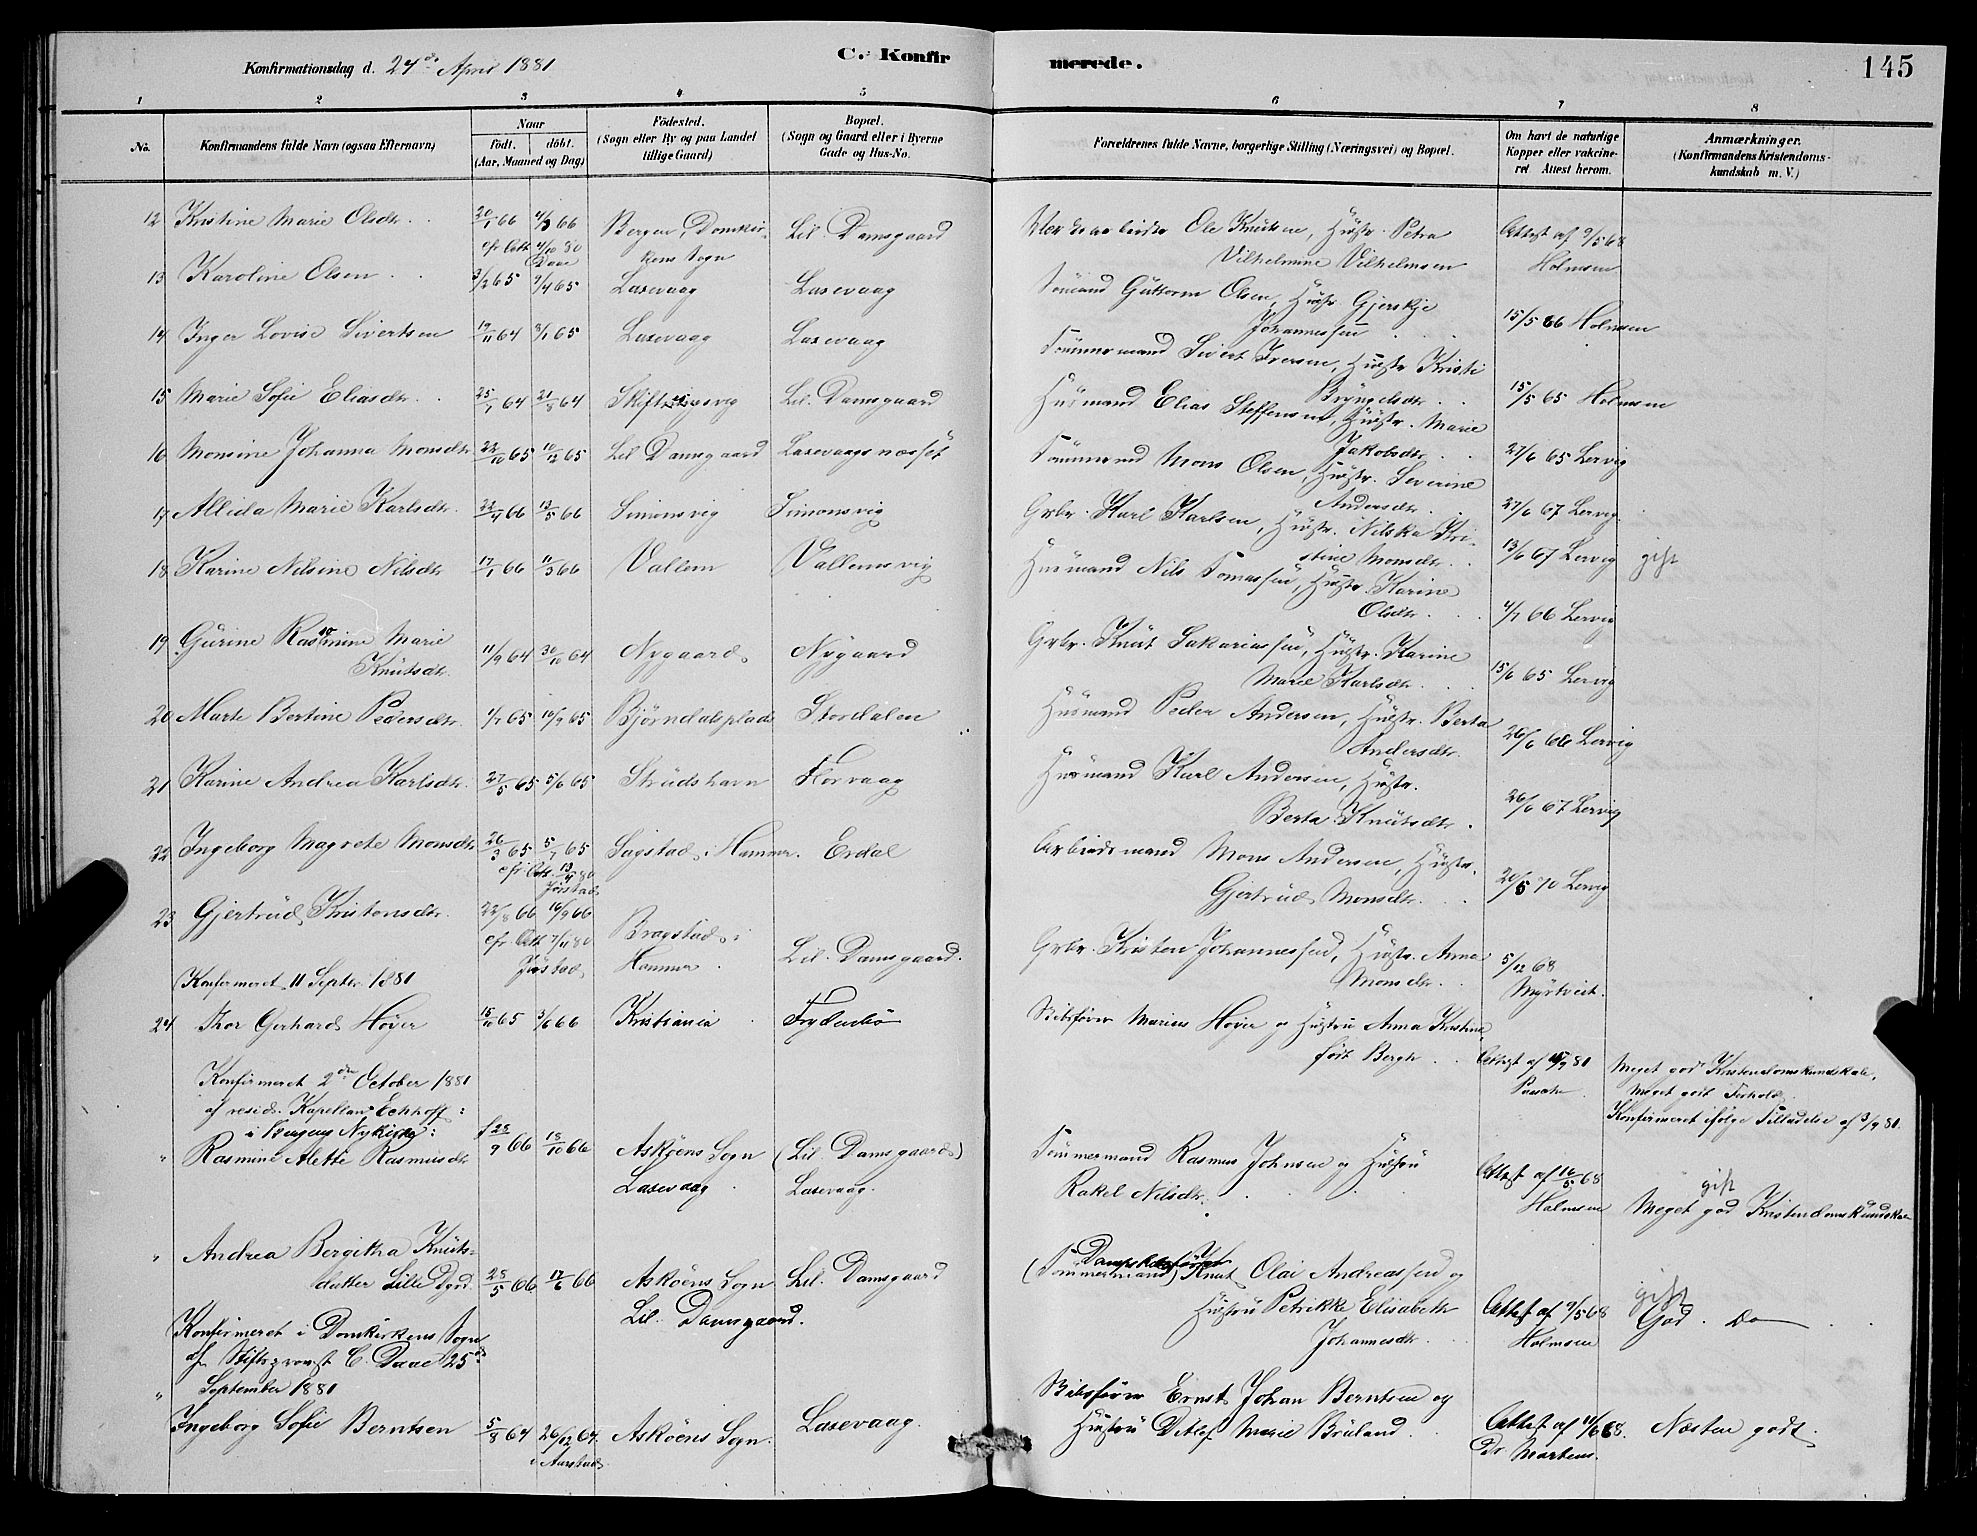 Konfirmationsdag d. 24de April 1881
C. Konfirmerede.
145
1 2 3 4 5 6 7 8
No.
Konfirmandens fulde Navn (ogsaa Efternavn)
Naar
födt. döbt.
(Aar, Maaned og Dag)
Födested.
(Sogn eller By og paa Landet
tillige Gaard)
Bopæl.
(Sogn og Gaard eller i Byerne
Gade og Hus-No.
Forældrenes fulde Navne, borgerlige Stilling (Næringsvei) og Bopæl.
Om havt de naturlige
Kopper eller vakcine-
ret Attest herom.
Anmærkninger.
(Konfirmandens Kristendoms-
kundskab m. V.)
12 Kristine Marie Olsdtr. 20/1 66 4/3 66 Bergen, Domkir- Lil. Damsgaard Ole Knutsen, Hustr. Petra Attest af 9/5 68
cfr. Att. 4/10 80 kens Sogn Vilhelmine Vilhelmsen Holmsen
Daae
13 Karoline Olsen 3/2 65 9/4 65 Laxevaag Laxevaag Sömand Guttorm Olsen, Hustr. Gjerskje
Johannessen 15/5 66 Holmsen
14 Inger Lovise Sivertsen 19/11 64 8/1 65 Laxevaag Laxevaag Tömmermand Sivert Iversen, Hustr. Kristi
Bryngelsdtr. 15/5 65 Holmsen
15 Marie Sofie Eliasdtr. 25/7 64 21/8 64 Skiftingsvig Lil. Damsgaard Husmand Elias Steffensen, Hustr. Marie
Jakobsdtr. 27/6 65 Lervig
16 Monsine Johanna Monsdtr. 22/10 65 10/12 65 Lil Damsgaard Laxevaagsnæsset Tömmermand Mons Olsen, Hustr. Severine
Andersdtr. 27/6 67 Lervig.
17 Allida Marie Karlsdtr. 22/4 66 13/5 66 Simonsvig Simonsvig Grbr. Karl Karlsen, Hustr. Nilska Kri-
stine Monsdtr. 13/6 67 Lervig gift
18 Karine Nilsine Nilsdtr. 17/1 66 11/3 66 Vallem Vallemsvig Husmand Nils Tomassen, Hustr. Karine
Olsdtr. 4/7 66 Lervig
19 Gurine Rasmine Marie
Knutsdtr. 11/9 64 30/10 64 Nygaard Nygaard Grbr. Knut Sakariassen, Hustr. Karine
Marie Karlsdtr. 15/6 65 Lervig
20 Marte Bertine Pedersdtr. 1/7 65 10/9 65 Björndalsplads Stordalen Husmand Peder Andersen, Hustr. Berta
Andersdtr. 26/6 66 Lervig
21 Karine Andrea Karlsdtr. 27/5 65 5/6 65 Strudshavn Florvaag Husmand Karl Andersen, Hustr.
Berta Knutsdtr. 26/6 67 Lervig
22 Ingeborg Magrete Monsdtr. 26/3 65 5/7 65 Sagstad i Hammer. Erdal Arbeidsmand Mons Andersen, Hustr.
cfr. Att. 13/4 80 Gjertrud Monsdtr. 20/6 70 Lervig
Jörstad
23 Gjertrud Kristensdtr. 22/8 66 16/9 66 Bragstad i
cfr. Att. 7/11 80 Hammer. Lil. Damsgaard. Grbr. Kristen Johannessen, Hustr. Anna 5/12 68
Jörstad Monsdtr. Myrtveit.
Konfirmeret 11 Septbr. 1881
24 Thor Gerhard Höyer 15/10 65 3/6 66 Kristiania Frydenbö Skibsförer Marius Höyer og Hustru Anna Kristine,
född Bergh. Attest af 15/9 81
Meget god Kristendomskundskab,
Meget godt Forhold.
Konfirmeret ifölge Tilladelse af 3/9 81.
Konfirmeret 2den October 1881
af resid. Kapellan Eckhoff
i Bergens Nykirke:
" Rasmine Alette Rasmusdtr f 28/9 66 18/10 66 Asköens Sogn (Lil. Damsgaard) Tömmermand Rasmus Johnsen og Hustru Attest af 16/5 68 gift
Laxevaag Laxevaag. Rakel Nilsdtr. Holmsen Meget god Kristendomskundskab
" Andrea Bergitha Knuts-
datter Lille Dgrd. 25/5 66 17/6 66 Asköens Sogn Lil. Damsgaard (Tömmermand) Knut Olai Andreassen og
Lil. Damsgaard. Hustru Petrikke Elisabeth Attest af 9/5 68 gift
Johannesdtr. Holmsen God. Do
Konfirmeret i Domkirkens Sogn
af Stiftsprovst C. Daae 25de
September 1881
" Ingeborg Sofie Berntsen 5/8 64 26/12 64 Asköens Sogn. Laxevaag. Skibsförer Ernst Johan Berntsen og
i Aarstad Hustru Ditlef Marie Bruland. Attest af 11/6 68. Næsten godt.
Dr. Martens.